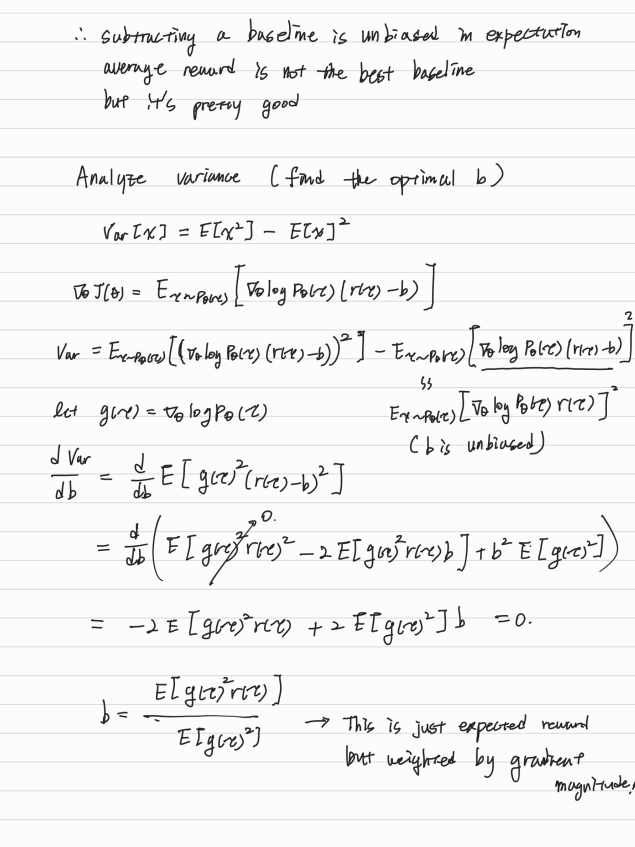 ∴ subtracting a baseline is unbiased in expectation
average reward is not the best baseline
but it's pretty good
Analyze variance (find the optimal b)
Var[x] = E[x²] - E[x]²
∇θ J(θ) = E_τ~Pθ(τ) [∇θ log Pθ(τ) (r(τ) - b)]
Var = E_τ~Pθ(τ) [(∇θ log Pθ(τ) (r(τ) - b))²] - E_τ~Pθ(τ) [∇θ log Pθ(τ) (r(τ) - b)]²
let g(τ) = ∇θ log Pθ(τ)
E_τ~Pθ(τ) [∇θ log Pθ(τ) r(τ)]²
(b is unbiased)
d Var / db = d/db E[g(τ)² (r(τ) - b)²]
= d/db (E[g(τ)² r(τ)² - 2 E[g(τ)² r(τ) b] + b² E[g(τ)²])
0.
= -2 E[g(τ)² r(τ) + 2 E[g(τ)²] b = 0.
b = E[g(τ)² r(τ)] / E[g(τ)²] → This is just expected reward
but weighted by gradient
magnitude!